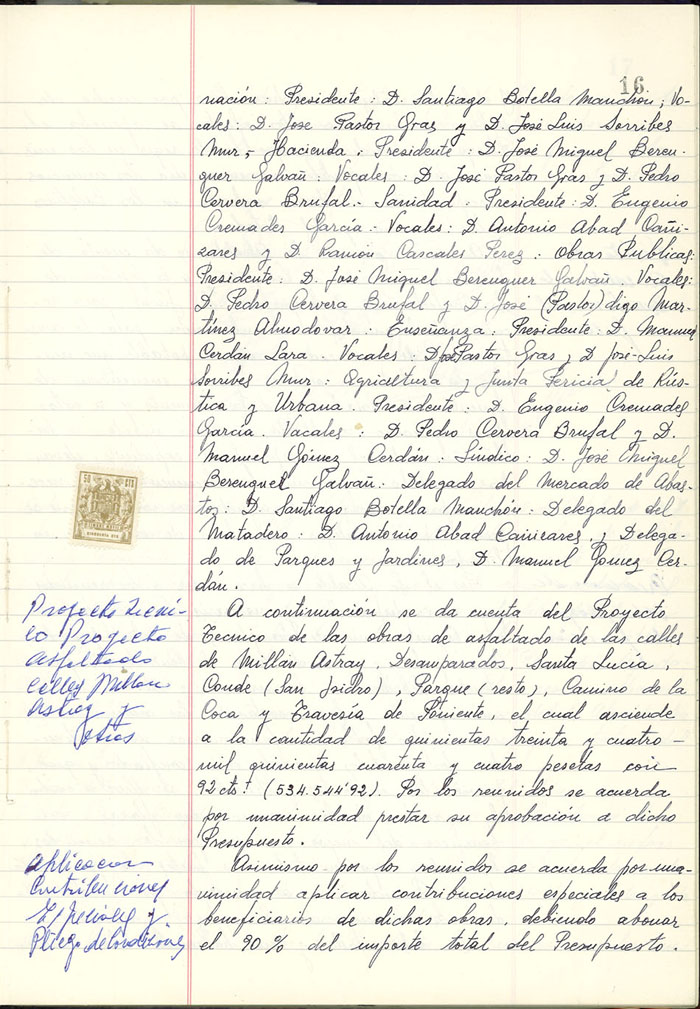 16
nación: Presidente: D. Santiago Botella Manchón; Vo-
cales: D. Jose Pastor Gras y D. José Luis Sorribes
Mur,- Hacienda: Presidente: D. José Miguel Beren-
guer Galvañ: Vocales: D. José Pastor Gras y D. Pedro
Cervera Brufal.- Sanidad. Presidente: D. Eugenio
Cremades García. Vocales: D. Antonio Abad Cañi-
zares y D. Ramón Cascales Perez. Obras Publicas:
Presidente: D. José Miguel Berenguer Galvañ. Vocales:
D. Pedro Cervera Brufal y D. José (Pastor) digo Mar-
tínez Almodovar. Enseñanza: Presidente: D. Manuel
Cerdán Lara. Vocales: D. José Pastor Gras y D. José-Luis
Sorribes Mur: Agricultura y Junta Pericial de Rús-
tica y Urbana. Presidente: D. Eugenio Cremades
García. Vacales: D. Pedro Cervera Brufal y D.
Manuel Gómez Cerdán: Síndico: D. José Miguel
Berenguel Galvañ: Delegado del Mercado de Abas-
tos: D. Santiago Botella Manchón: Delegado del
Matadero: D. Antonio Abad Cañizares, y Delega-
do de Parques y Jardines, D. Manuel Gomez Cer-
dán.
50 CTS
Proyecto Tecni-
co Proyecto
asfaltado
calles Millan
Astray y
otras
A continuación se da cuenta del Proyecto
Tecnico de las obras de asfaltado de las calles
de Millán Astray, Desamparados, Santa Lucía,
Conde (San Isidro), Parque (resto), Camino de la
Coca y Travesía de Poniente, el cual asciende
a la cantidad de quinientas treinta y cuatro-
mil quinientas cuarenta y cuatro pesetas con
92 cts! (534.544'92). Por los reunidos se acuerda
por unanimidad prestar su aprobación a dicho
Presupuesto.
aplicacion
Contribuciones
Especiales y
Pliego de Condiciones
Asimismo por los reunidos se acuerda por una-
nimidad aplicar contribuciones especiales a los
beneficiarios de dichas obras, debiendo abonar
el 90% del importe total del Presupuesto.